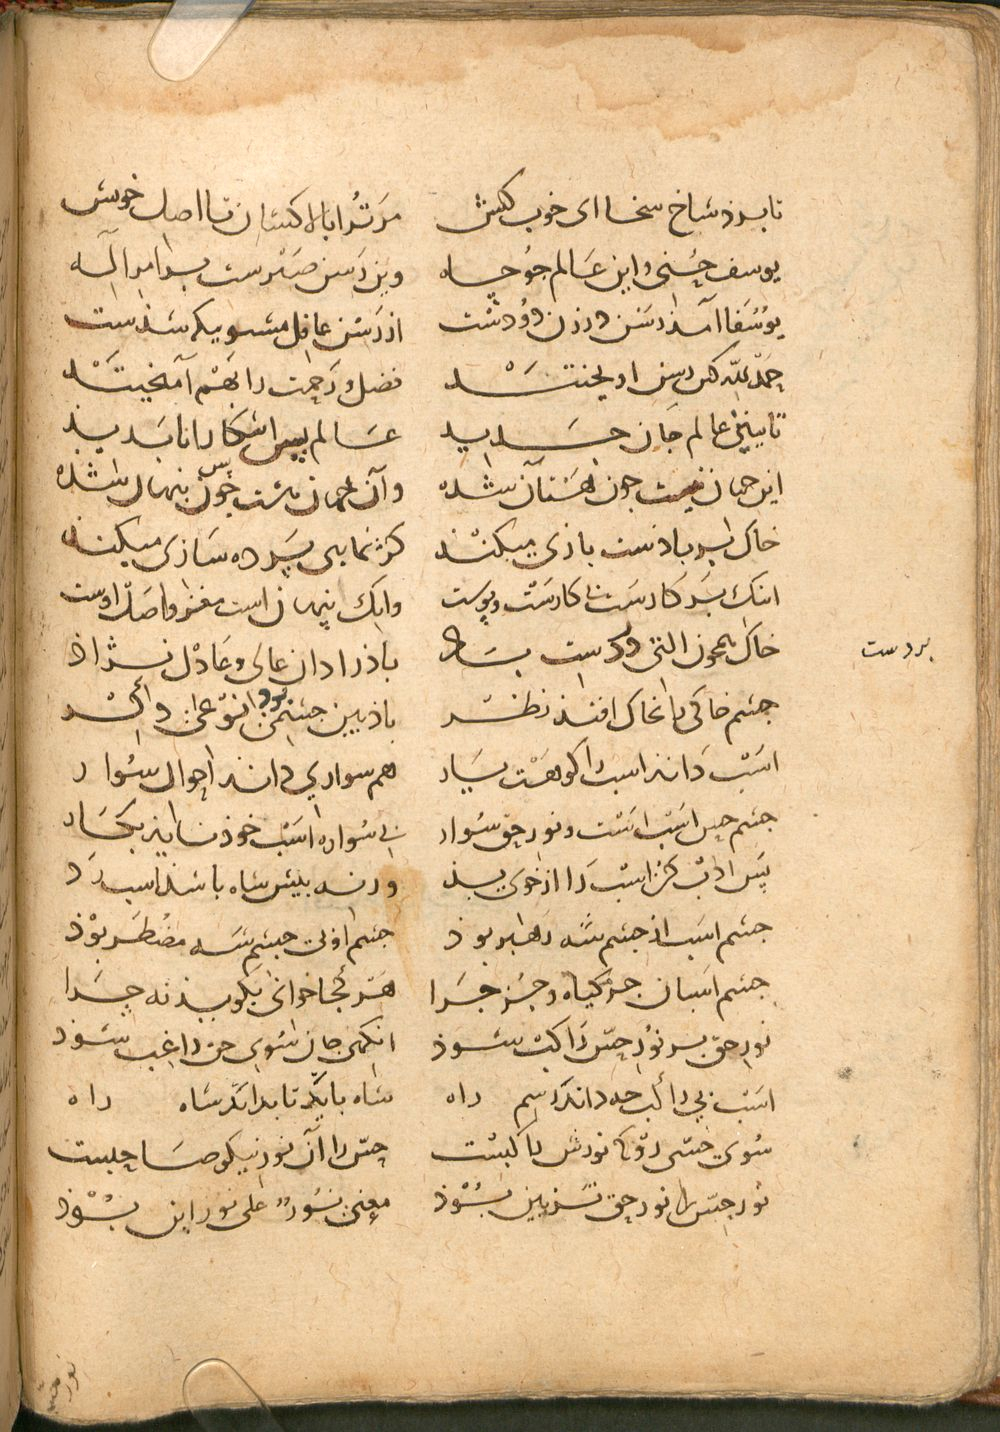 تا برذ شاخ سخا ای خوب کیش مر ترا بالا کشان تا اصل خویش
یوسف حسنی و این عالم جو چاه وین رسن صبرست بر امر اله
یوسفا آمذ رسن در زن دو دست از رسن غافل مشو بیکه شذست
حمد لله کین رسن اویختند فضل و رحمت را بهم آمیختند
تا ببینی عالم جان جدید عالم بس اشکارا ناپدید
این جهان نیست جون هستان شده وآن جهان هست بس پنهان شده
خاک بر باذست بازی میکند کژنمایی پرده سازی میکند
اینک بر کارست بی کارست و پوست وانک پنهان است مغز و اصل اوست
خاک همچون التی در دست باد باذ را دان عالی و عادل نژاذ
بر دست
جشم خاکی را بخاک افتذ نظر باذ بین جشمی بوذ نوعی دگر
اسب داند اسب را کو هست یار هم سواری داند احوال سوار
جشم حس اسب است و نور حق سوار بی سواره اسب خوذ ناید بکار
پس ادب کن اسب را از خوی بذ ورنه پیش شاه باشذ اسب رد
جشم اسب از جشم شه رهبر بوذ جشم او بی جشم شه مضطر بوذ
جشم اسبان جز کیاه و جز جرا هر کجا خوانی بکویذ نه چرا
نور حق بر نور حس راکب شوذ انکهی جان سوی حق راغب شوذ
اسب بی راکب جه داند رسم راه شاه باید تا بداند شاه راه
سوی حسی رو که نورش راکبست حس را آن نور نیکو صاحبست
نور حس را نور حق تزیین بوذ معنی نور علی نور این بوذ
نور حس